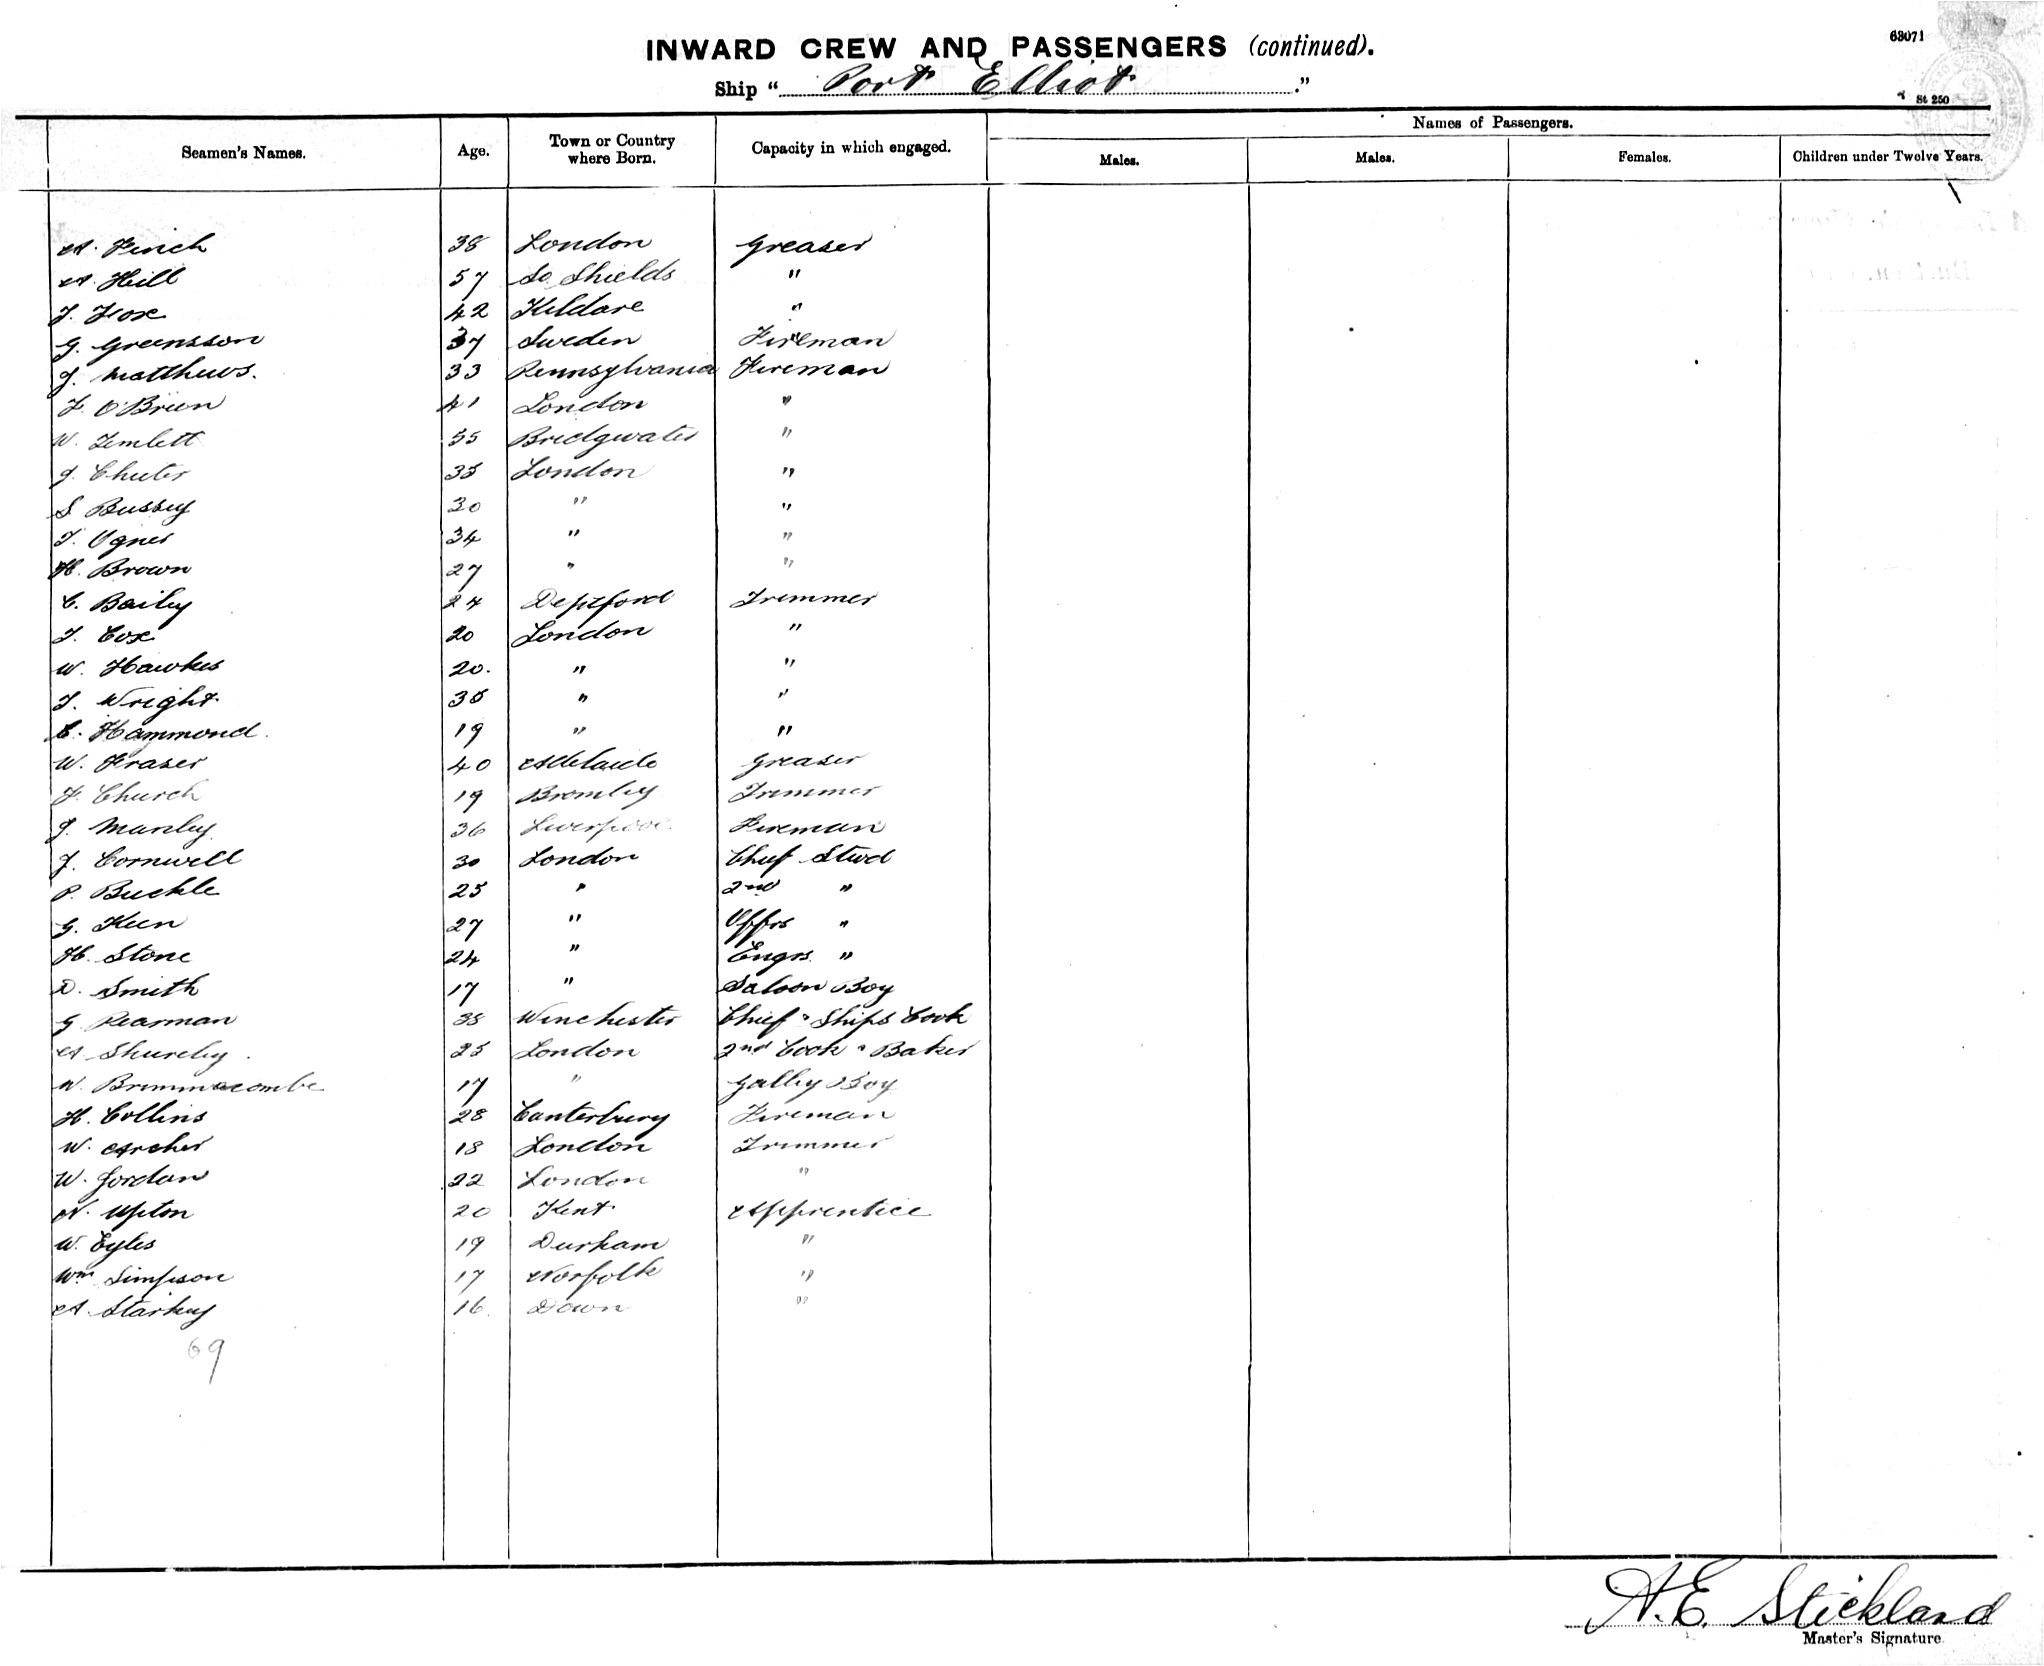 INWARD CREW AND PASSENGERS (continued).
63071
Ship " Port Elliot ."
St 250
Names of Passengers.
Seamen's Names. Age. Town or Country where Born. Capacity in which engaged. Males. Males. Females. Children under Twelve Years.
A. Finch 38 London Greaser
A. Hill 57 So Shields "
J. Fox 42 Kildare "
G. Greensson 37 Sweden Fireman
J. Matthews. 33 Pennsylvania Fireman
F. O'Brien 41 London "
W. Temlett 55 Bridgwater "
J. Chuter 35 London "
S Bussey 30 " "
T. Ogner 34 " "
H. Brown 27 " "
C. Baily 24 Deptford Trimmer
T. Cox 20 London "
W. Hawkes 20. " "
T. Wright 35 " "
C. Hammond. 19 " "
W. Fraser 40 Adelaide Greaser
F. Church 19 Bromley Trimmer
J. Manley 36 Liverpool Fireman
J. Cornwell 30 London Chief Stwd
P. Buckle 25 " 2nd "
G. Keen 27 " Offrs "
H. Stone 24 " Engrs "
D. Smith 17 " Saloon Boy
G Pearman 38 Winchester Chief & Ships Cook
A Shureby 25 London 2nd Cook & Baker
W. Brimmacombe 17 " Galley Boy
H. Collins 28 Canterbury Fireman
W. Archer 18 London Trimmer
W. Jordan 22 London "
N. Upton 20 Kent Apprentice
W. Eyles 19 Durham "
Wm Simpson 17 Norfolk "
A. Starkey 16 Down "
69
A. E. Stickland
Master's Signature